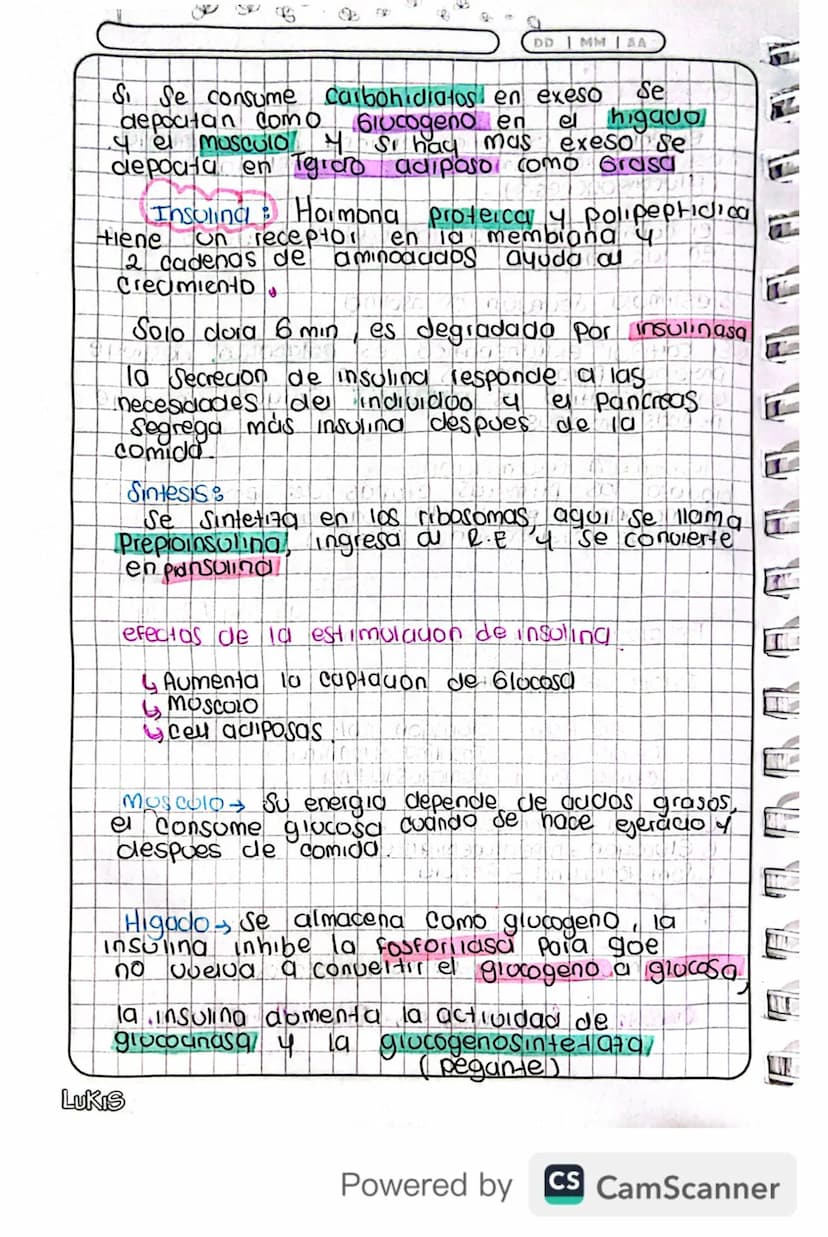 DD | MM | AA
Si se consume carbohidratos en exeso se
depocitan como Glucogeno en el higado
y el musculo y si hay mas exeso se
depocita en Tejido adiposo como Grasa
Insulina: Hormona proteica y polipeptidica
tiene un receptor en la membrana y
2 cadenas de aminoacidos ayuda al
crecimiento.
Solo dura 6 min, es degradada por insulinasa
la secrecion de insulina responde a las
necesidades del individuo y el pancreas
segrega más insulina despues de la
comida.
Sintesis:
Se sintetiza en los ribosomas, aqui se llama
Preproinsulina, ingresa al R.E y se convierte
en proinsulina
efectos de la estimulacion de insulina.
↳ Aumenta la captacion de Glucosa
↳ Musculo
↳ cell adiposas.
Musculo → Su energia depende de acidos grasos,
el consume glucosa cuando se hace ejercicio y
despues de comida.
Higado → Se almacena como glucogeno, la
insulina inhibe la fosforilasa para que
no vuelva a convertir el glucogeno a glucosa,
la insulina aumenta la actividad de
glucocinasa y la glucogenosintetata
(pegante)
LUKIS
Powered by CS CamScanner